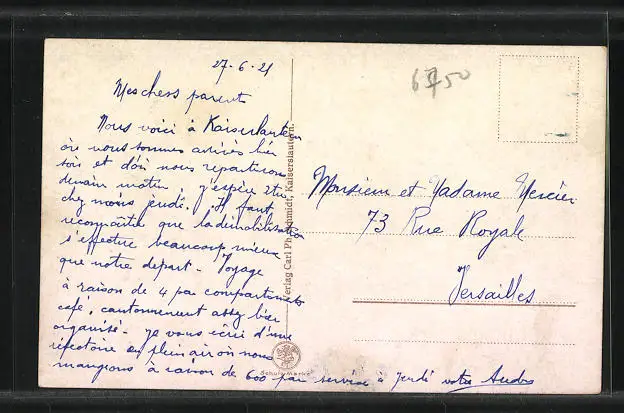 27-6-21
Mes chers parents
Nous voici à Kaiserslautern
où nous sommes arrivés hier
soir et d'où nous repartirons
demain matin, j'espère être
chez nous jeudi. Il faut
reconnaître que la démobilisation
s'effectue beaucoup mieux
que notre départ - Voyage
à raison de 4 par compartiments
café, cantonnement assez bien
organisé - je vous écris d'un
réfectoire en plein air où nous
mangeons à raison de 600 par service à jeudi votre André
Verlag Carl Ph. Schmidt, Kaiserslautern.
Schutz-Marke
6750
Monsieur et Madame Mercier
73 Rue Royale
Versailles